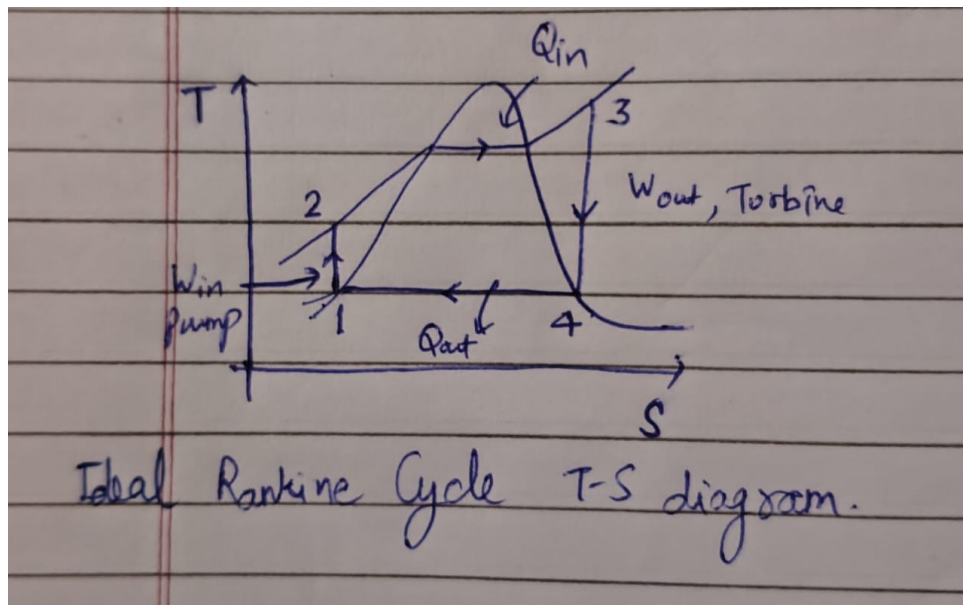 Qin
T
3
2
Wout, Turbine
Win
pump
1
4
Qout
S
Ideal Rankine Cycle T-S diagram.